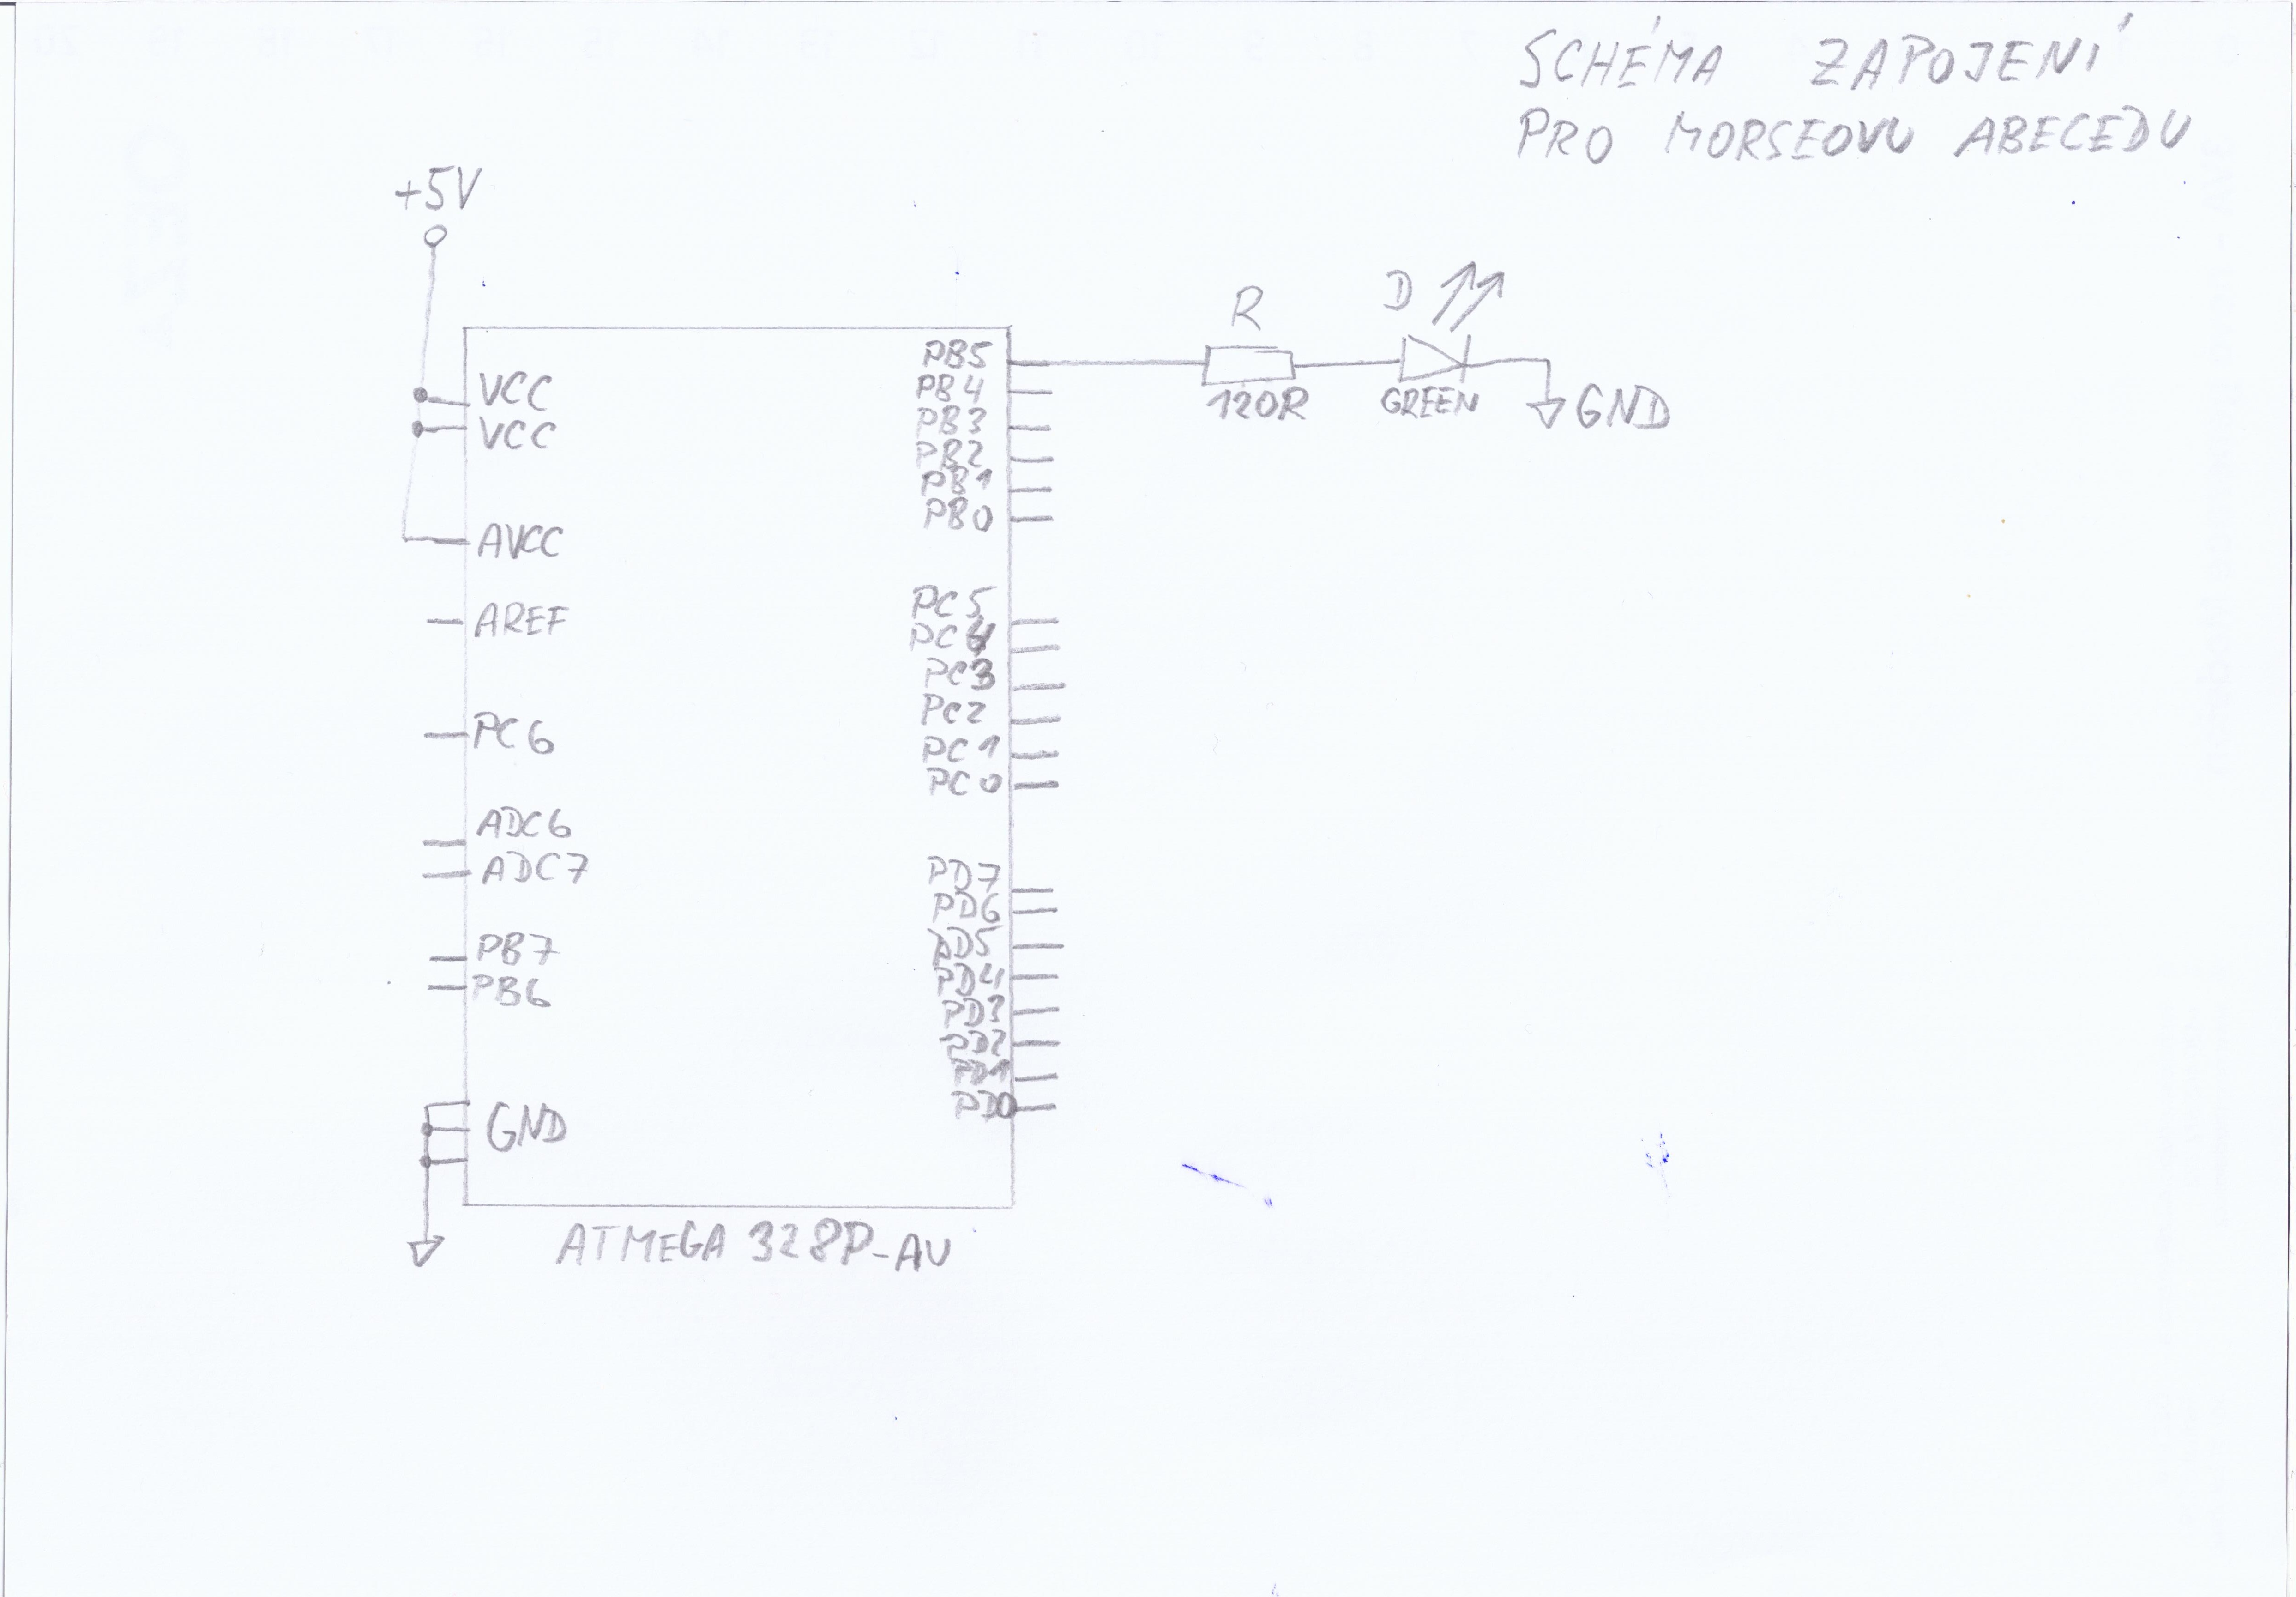 SCHÉMA ZAPOJENÍ
PRO MORSEOVU ABECEDU
+5V
VCC
VCC
AVCC
AREF
PC6
ADC6
ADC7
PB7
PB6
GND
PB5
PB4
PB3
PB2
PB1
PB0
PC5
PC4
PC3
PC2
PC1
PC0
PD7
PD6
PD5
PD4
PD3
PD2
PD1
PD0
R
120R
D
GREEN
GND
ATMEGA 328P-AU